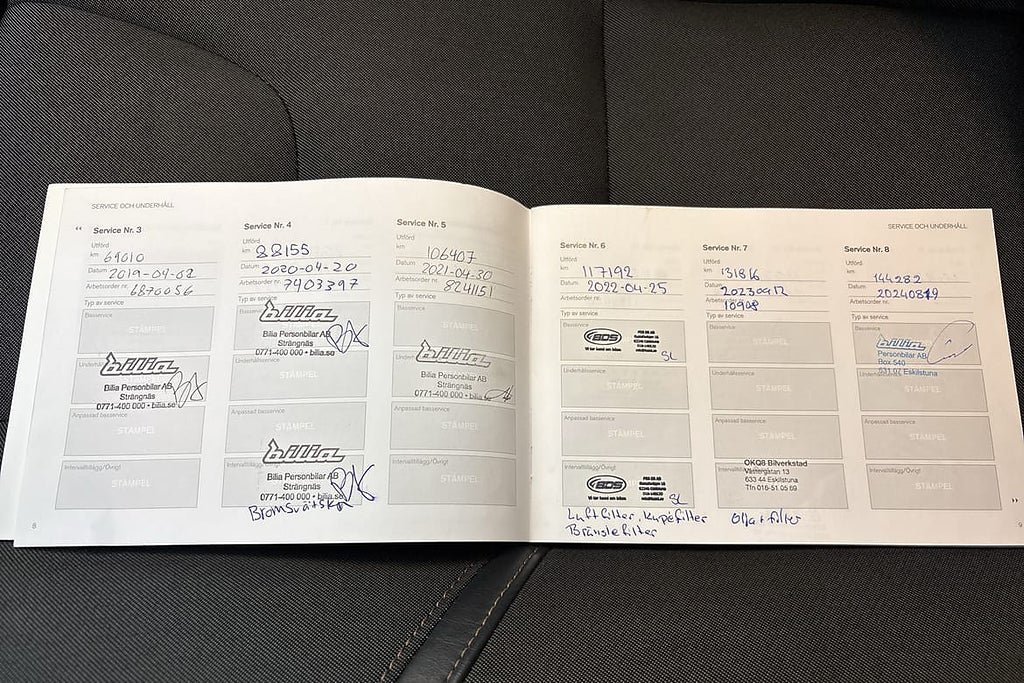 SERVICE OCH UNDERHÅLL
Service Nr. 3
Utförd
km 69010
Datum 2019-04-02
Arbetsorder nr. 6870056
Typ av service
Basservice
STÄMPEL
Underhållsservice
bilia
Bilia Personbilar AB
Strängnäs
0771-400 000 • bilia.se
Anpassad basservice
STÄMPEL
Intervalltillägg/Övrigt
STÄMPEL
8
Service Nr. 4
Utförd
km 88155
Datum 2020-04-20
Arbetsorder nr. 7403397
Typ av service
Basservice
bilia
Bilia Personbilar AB
Strängnäs
0771-400 000 • bilia.se
Underhållsservice
STÄMPEL
Anpassad basservice
STÄMPEL
bilia
Intervalltillägg/Övrigt
Bilia Personbilar AB
Strängnäs
0771-400 000 • bilia.se
Bromsvätska
Service Nr. 5
Utförd
km 106407
Datum 2021-04-30
Arbetsorder nr. 8241151
Typ av service
Basservice
STÄMPEL
Underhållsservice
bilia
Bilia Personbilar AB
Strängnäs
0771-400 000 • bilia.se
Anpassad basservice
STÄMPEL
Intervalltillägg/Övrigt
STÄMPEL
SERVICE OCH UNDERHÅLL
Service Nr. 6
Utförd
km 117192
Datum 2022-04-25
Arbetsorder nr.
Typ av service
Basservice
BDS
Vi tar hand om bilen
SL
Underhållsservice
STÄMPEL
Anpassad basservice
STÄMPEL
Intervalltillägg/Övrigt
BDS
Vi tar hand om bilen
SL
Luftfilter, Kupéfilter
Bränslefilter
Service Nr. 7
Utförd
km 131816
Datum 20230912
Arbetsorder nr. 10908
Typ av service
Basservice
STÄMPEL
Underhållsservice
STÄMPEL
Anpassad basservice
STÄMPEL
Intervalltillägg/Övrigt
OKQ8 Bilverkstad
Västergatan 13
633 44 Eskilstuna
Tfn 016-51 05 69
Olja + filter
Service Nr. 8
Utförd
km 144282
Datum 20240819
Arbetsorder nr.
Typ av service
Basservice
bilia
Personbilar AB
Box 540
631 07 Eskilstuna
Underhållsservice
STÄMPEL
Anpassad basservice
STÄMPEL
Intervalltillägg/Övrigt
STÄMPEL
9